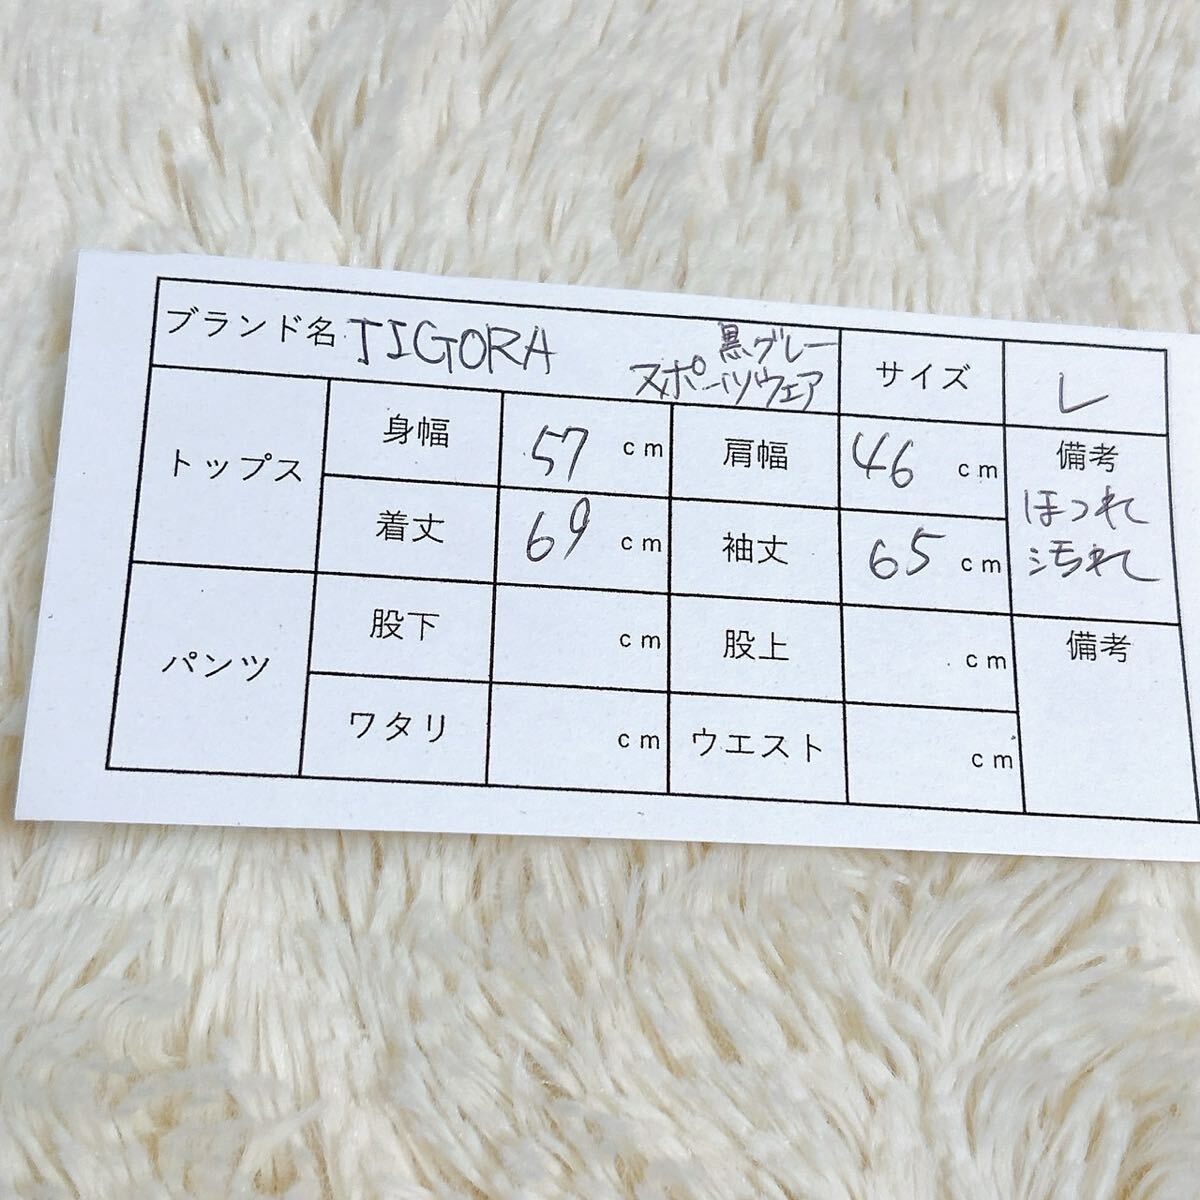 ブランド名 TIGORA 黒グレー
スポーツウェア サイズ L
トップス 身幅 57 cm 肩幅 46 cm 備考
ほつれ
汚れ
着丈 69 cm 袖丈 65 cm
パンツ 股下 cm 股上 cm 備考
ワタリ cm ウエスト cm